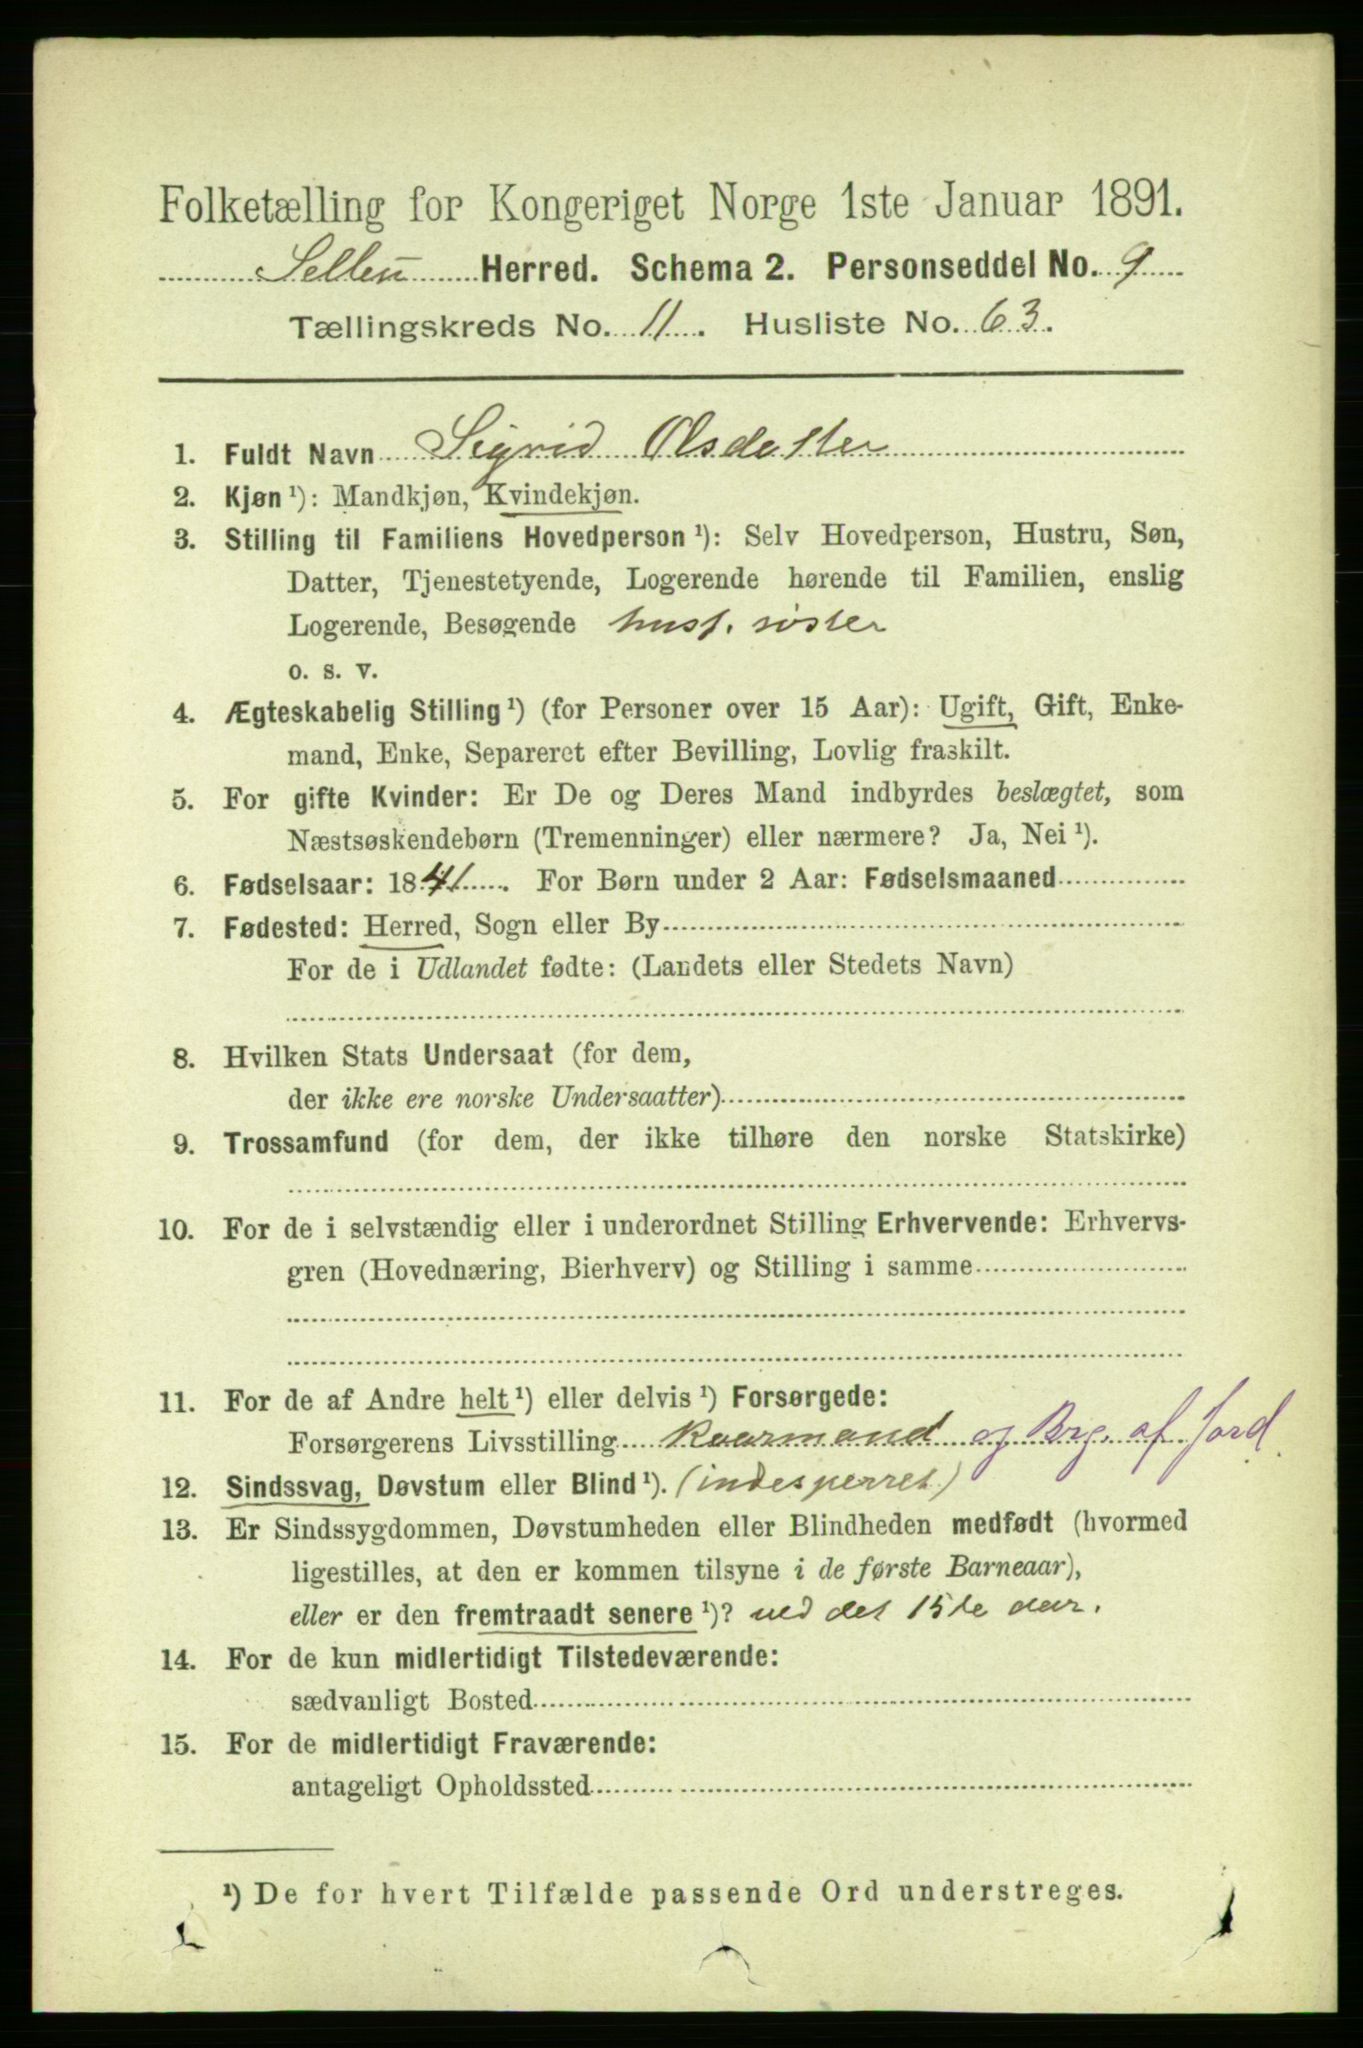 Folketælling for Kongeriget Norge 1ste Januar 1891.
Selbu Herred. Schema 2. Personseddel No. 9
Tællingskreds No. 11. Husliste No. 63.
1. Fuldt Navn Sigrid Olsdatter
2. Kjøn ¹): Mandkjøn, Kvindekjøn.
3. Stilling til Familiens Hovedperson ¹): Selv Hovedperson, Hustru, Søn,
Datter, Tjenestetyende, Logerende hørende til Familien, enslig
Logerende, Besøgende husf. søster
o. s. v.
4. Ægteskabelig Stilling ¹) (for Personer over 15 Aar): Ugift, Gift, Enke-
mand, Enke, Separeret efter Bevilling, Lovlig fraskilt.
5. For gifte Kvinder: Er De og Deres Mand indbyrdes beslægtet, som
Næstsøskendebørn (Tremenninger) eller nærmere? Ja, Nei ¹).
6. Fødselsaar: 1841. For Børn under 2 Aar: Fødselsmaaned
7. Fødested: Herred, Sogn eller By
For de i Udlandet fødte: (Landets eller Stedets Navn)
8. Hvilken Stats Undersaat (for dem,
der ikke ere norske Undersaatter)
9. Trossamfund (for dem, der ikke tilhøre den norske Statskirke)
10. For de i selvstændig eller i underordnet Stilling Erhvervende: Erhvervs-
gren (Hovednæring, Bierhverv) og Stilling i samme
11. For de af Andre helt ¹) eller delvis ¹) Forsørgede:
Forsørgerens Livsstilling Kaarmand og Brg. af Jord
12. Sindssvag, Døvstum eller Blind ¹). (indesperret)
13. Er Sindssygdommen, Døvstumheden eller Blindheden medfødt (hvormed
ligestilles, at den er kommen tilsyne i de første Barneaar),
eller er den fremtraadt senere ¹)? ved det 15de aar.
14. For de kun midlertidigt Tilstedeværende:
sædvanligt Bosted
15. For de midlertidigt Fraværende:
antageligt Opholdssted
¹) De for hvert Tilfælde passende Ord understreges.